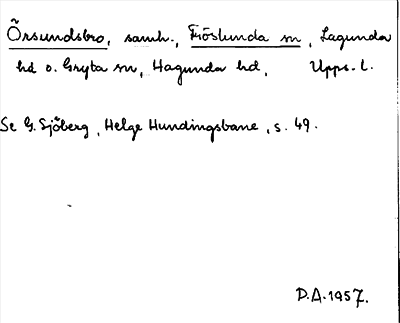 Örsundsbro, samh., Fröslunda sn, Lagunda
hd o. Gryta sn, Hagunda hd, Upps. l.
Se G. Sjöberg, Helge Hundingsbane, s. 49.
D.A. 1957.